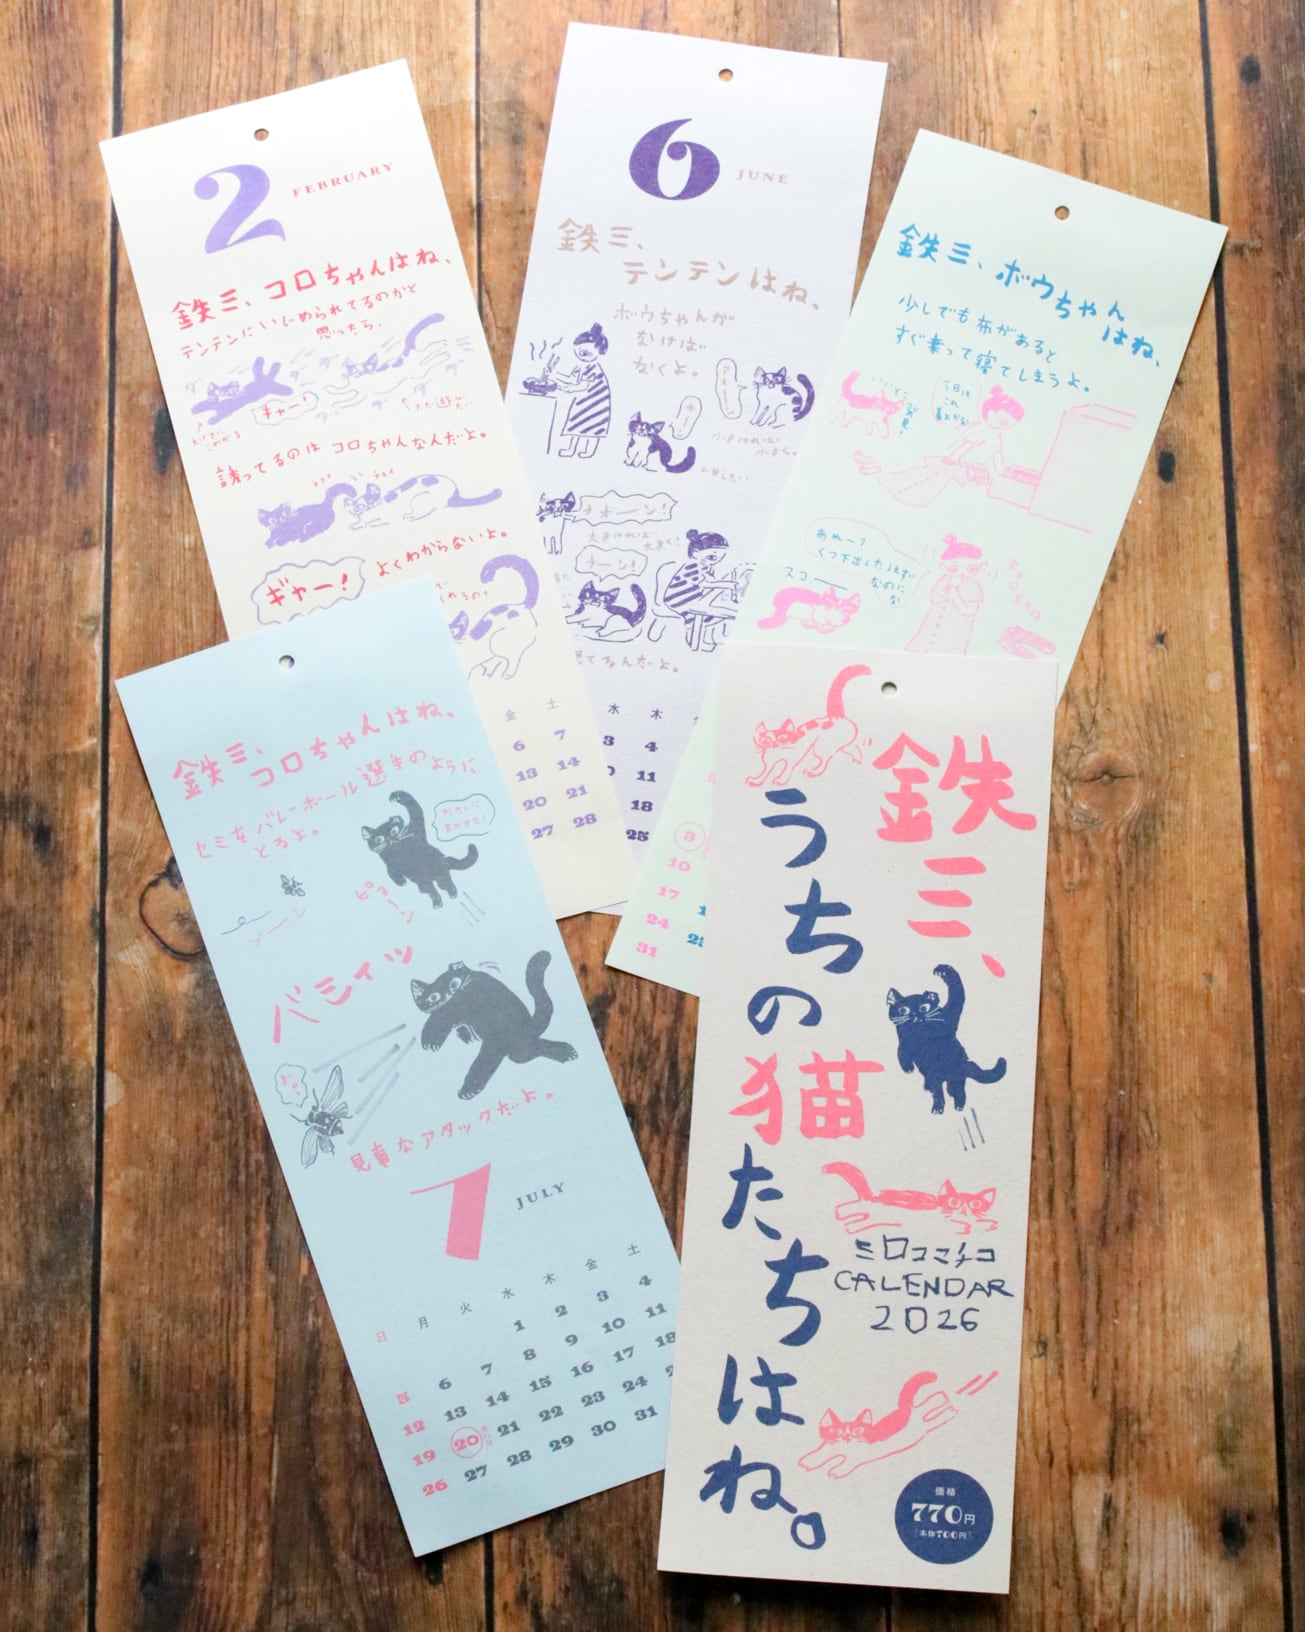 2 FEBRUARY
鉄三、コロちゃんはね、
テンテンにいじめられてるのかと
思ったら、
ギャー!
誘ってるのは コロちゃんなんだよ。
よくわからないよ。
ギャー!
金 土
6 7
13 14
20 21
27 28
6 JUNE
鉄三、
テンテンはね、
ボウちゃんが
なけば
なくよ。
小さければ
小さく。
ナオーン!
大きければ
大きく!
ナーン!
水 木
3 4
11
18
25
鉄三、ボウちゃん
はね、
少しでも布があると
すぐ乗って寝てしまうよ。
今日は
これ
あれー?
くつ下出したはず
なのに
な
スコー
3
10
17
24
31
25
鉄三、
コロちゃんはね、
セミをバレーボール選手のように
とるよ。
ピョーン
ブーン
バシィッ
見事なアタックだよ。
7 JULY
日 月 火 水 木 金 土
1 2 3 4
5 6 7 8 9 10 11
12 13 14 15 16 17 18
19 20 21 22 23 24
26 27 28 29 30 31
鉄三、
うちの猫たちはね。
ミロコマチコ
CALENDAR
2026
価格
770円
[本体700円]